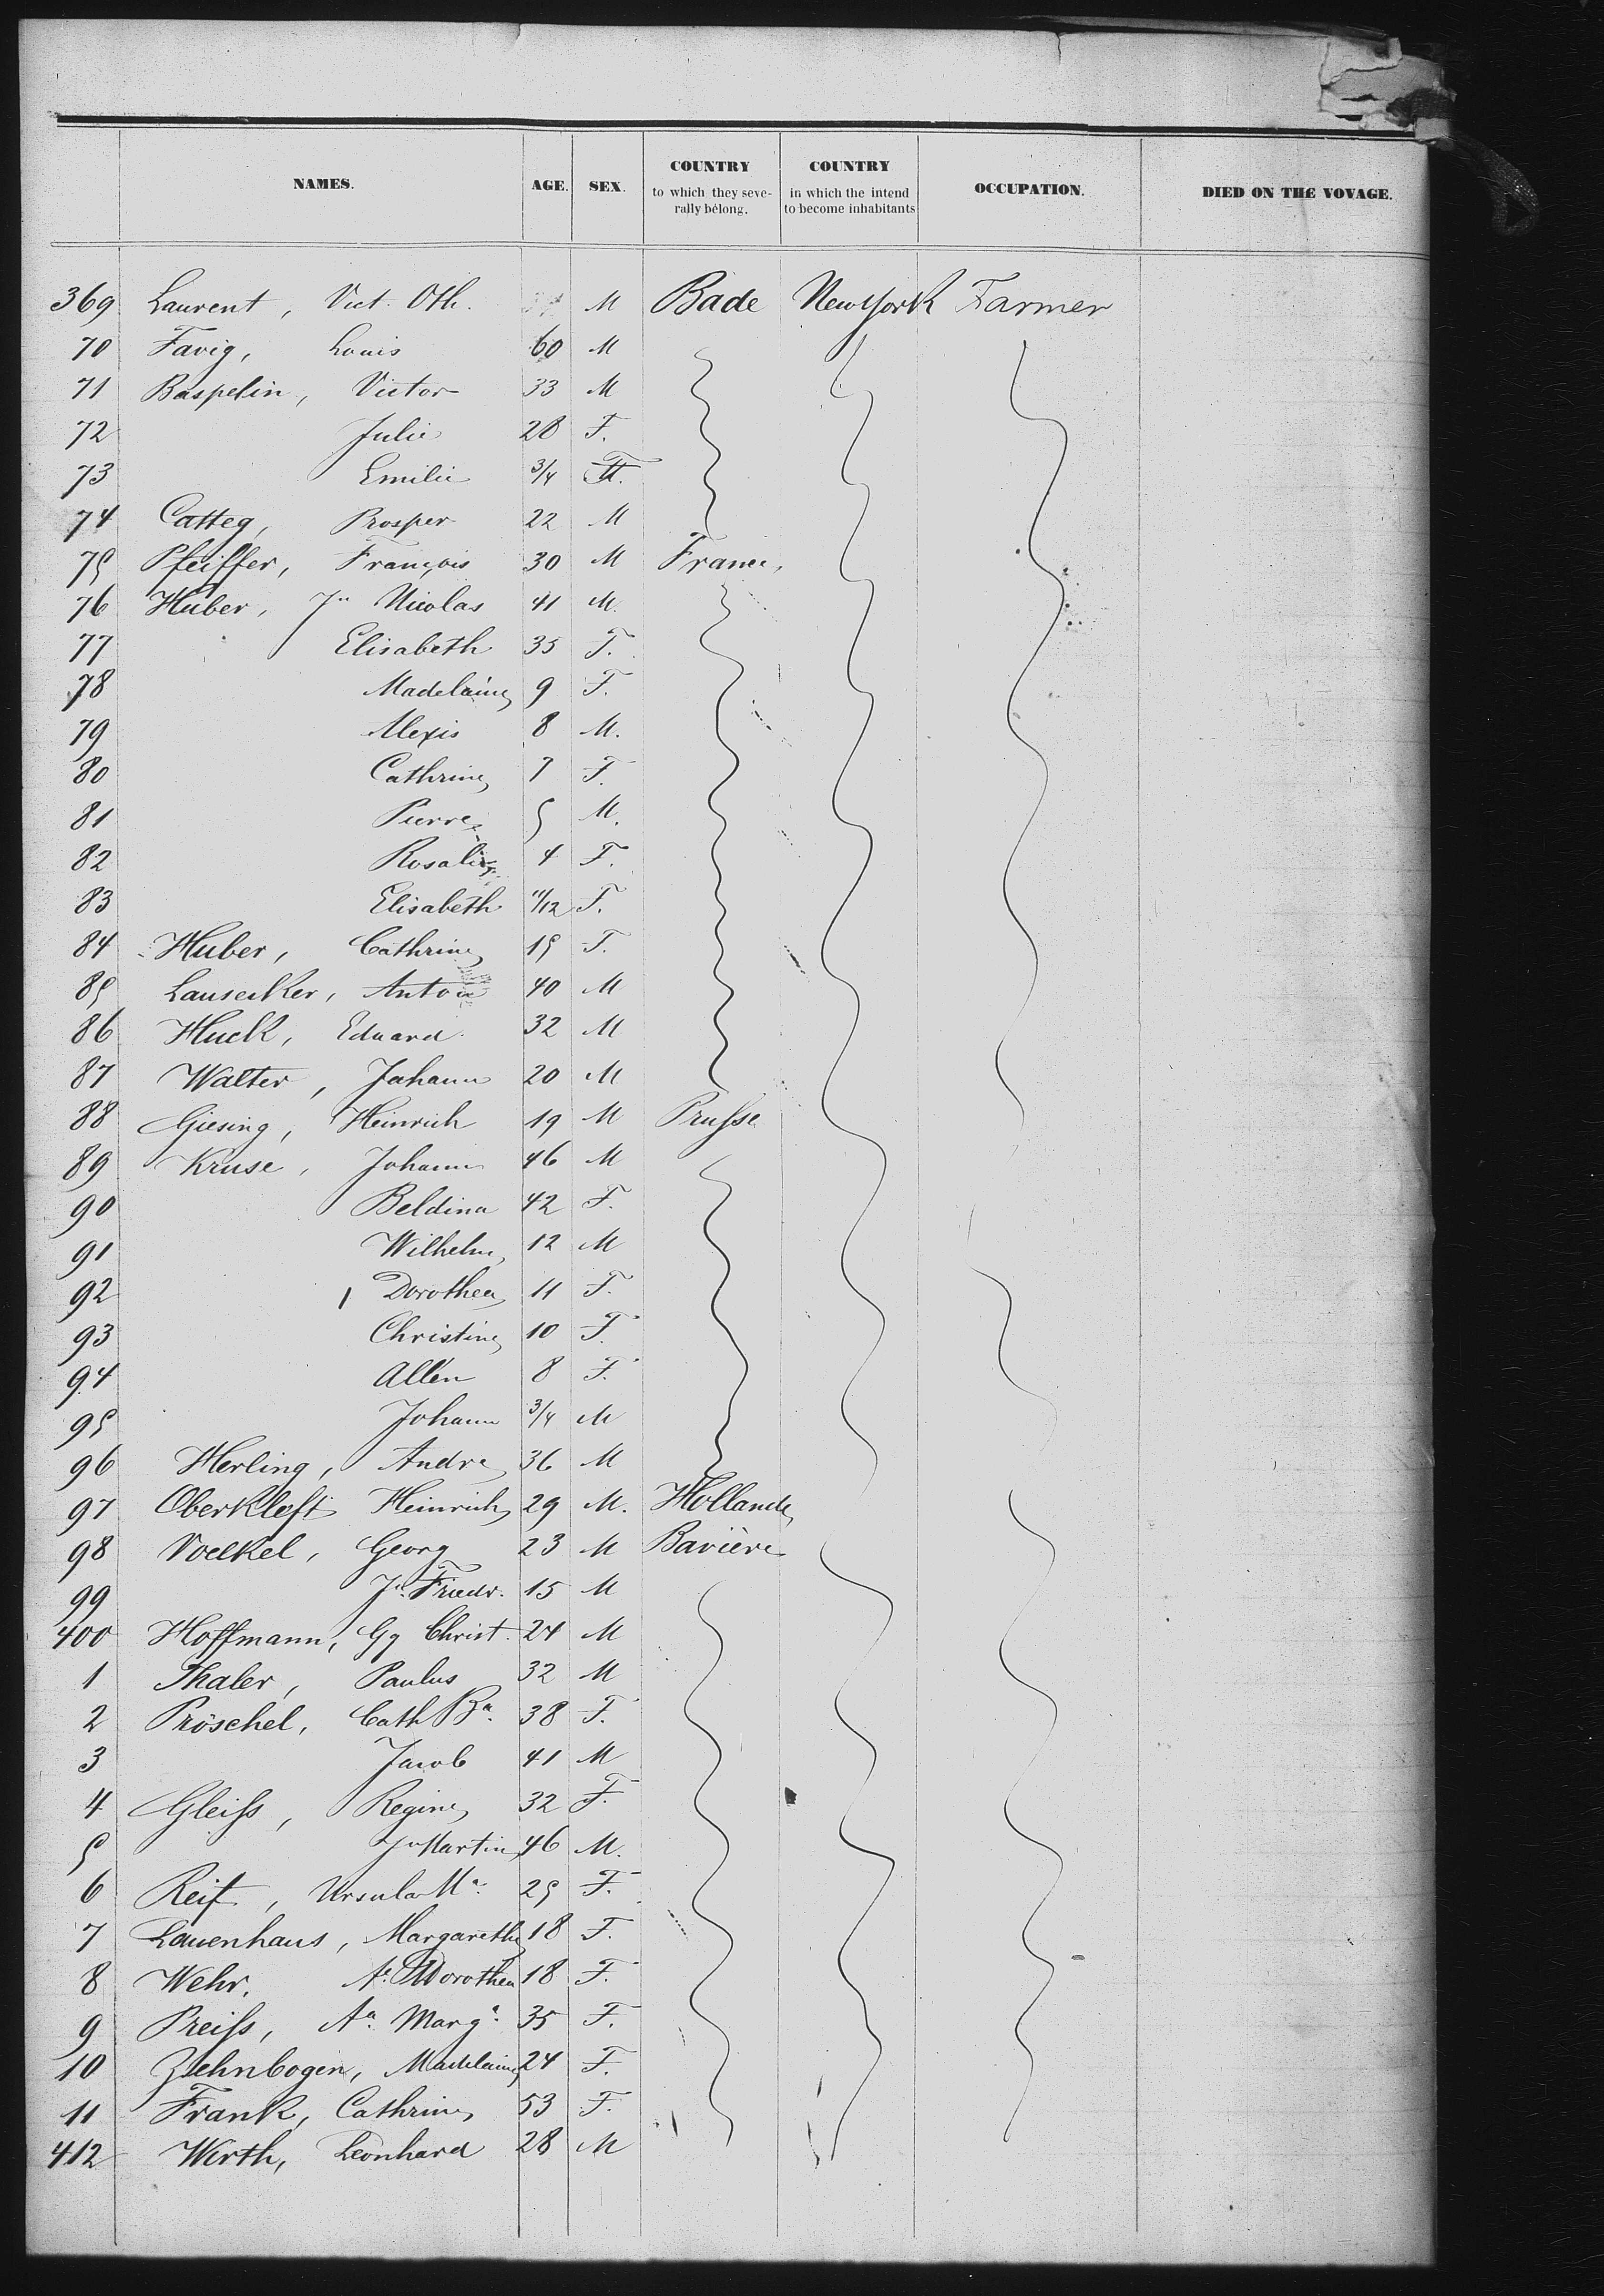 NAMES. AGE. SEX. COUNTRY to which they seve- rally bélong. COUNTRY in which the intend to become inhabitants OCCUPATION. DIED ON THE VOYAGE.
369 Laurent, Vict. Oth. M Bade NewYork Farmer
70 Favig, Louis 60 M
71 Baspelin, Victor 33 M
72 Julie 28 F.
73 Emilie 3/4 F.
74 Catteg, Prosper 22 M
75 Pfeiffer, François 30 M France,
76 Huber, Jn Nicolas 41 M.
77 Elisabeth 35 F.
78 Madelaine 9 F.
79 Alexis 8 M.
80 Cathrine 7 F.
81 Pierre 5 M.
82 Rosalie 4 F.
83 Elisabeth 11/12 F.
84 Huber, Cathrine 15 F.
85 Lausecker, Anton 40 M
86 Huck, Eduard 32 M
87 Walter, Johann 20 M
88 Giesing, Heinrich 19 M Prusse
89 Kruse, Johann 46 M
90 Beldina 42 F.
91 Wilhelm 12 M
92 Dorothea 11 F.
93 Christine 10 F.
94 Allen 8 F.
95 Johann 3/4 M
96 Herling, Andre 36 M
97 Oberkleft Heinrich 29 M. Hollande
98 Voelkel, Georg 23 M Bavière
99 Jn. Friedr. 15 M
400 Hoffmann, Gg Christ. 24 M
1 Thaler, Paulus 32 M
2 Pröschel, Cath Ba. 38 F.
3 Jacob 41 M
4 Gleiss, Regine 32 F.
5 Jn Martin 46 M.
6 Reif, Ursula Ma. 25 F.
7 Lauenhaus, Margarethe 18 F.
8 Wehr, Dorothea 18 F.
9 Preiss, Aa. Marga. 35 F.
10 Zehnbogen, Madelaine 24 F.
11 Frank, Cathrine 53 F.
412 Wirth, Leonhard 28 M